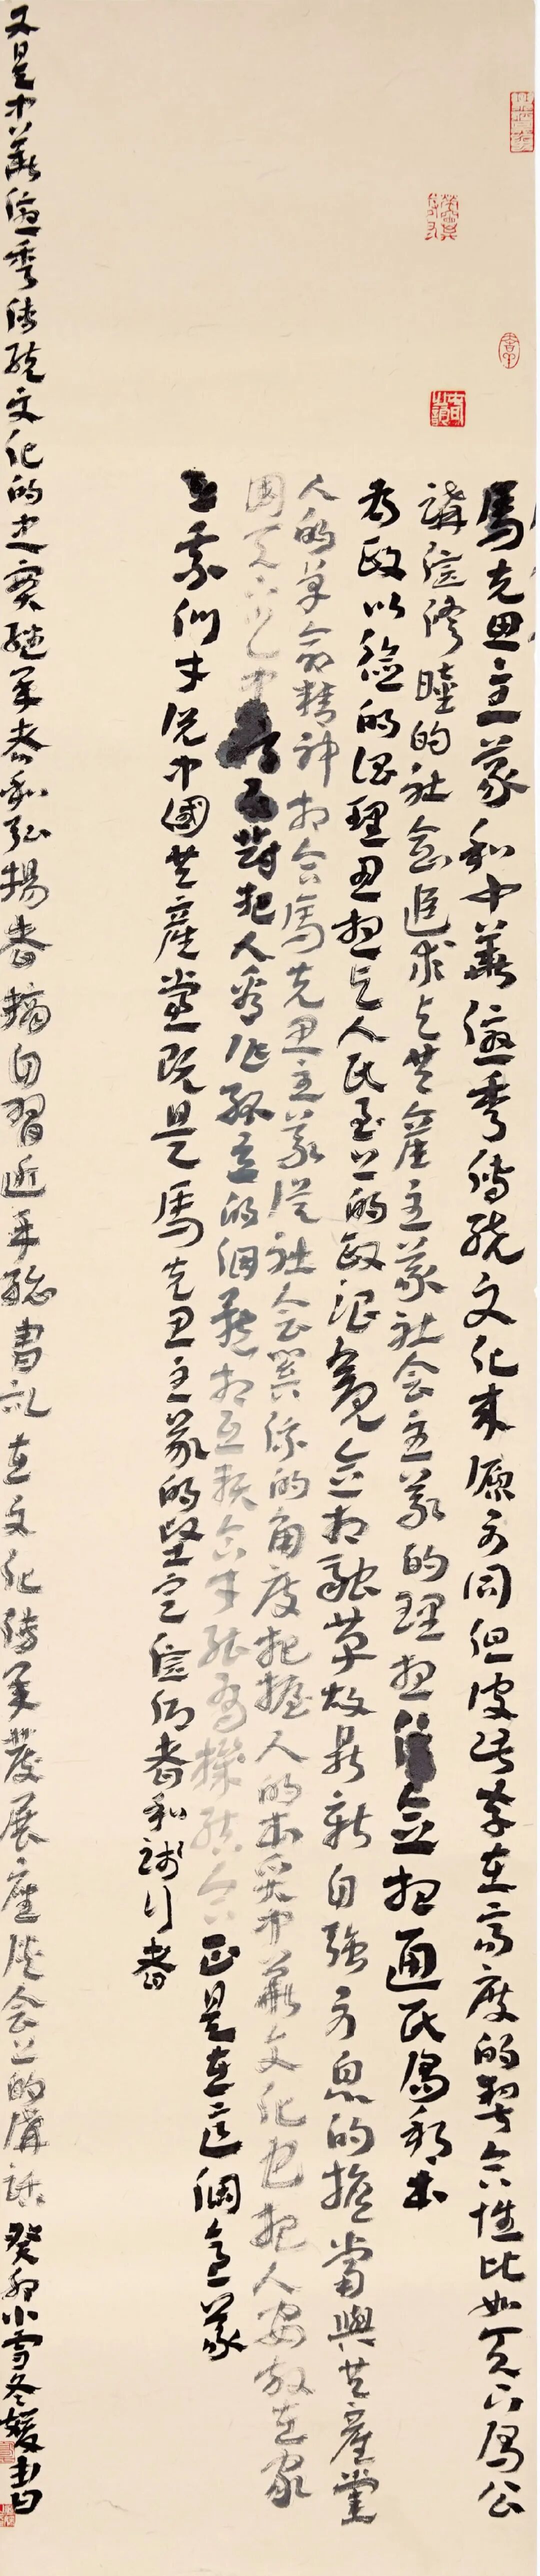 馬克思主義和中華優秀傳統文化來源不同但彼此存在高度的契合性比如天下為公
講信修睦的社會追求与共產主義社会主義的理想信念相通民為邦本
為政以德的治理思想与人民至上的政治觀念相融革故鼎新自強不息的擔當與共產黨
人的革命精神相合馬克思主義從社会關係的角度把握人的本質中華文化也把人安放在家
國天下之中都反對把人看作孤立的個體相互契合才能有機結合正是在這個意義
上我們才說中國共產黨既是馬克思主義的堅定信仰者和踐行者
又是中華優秀傳統文化的忠實繼承者和弘揚者摘自習近平總書記在文化傳承發展座談会上的講話癸卯小雪冬媛書